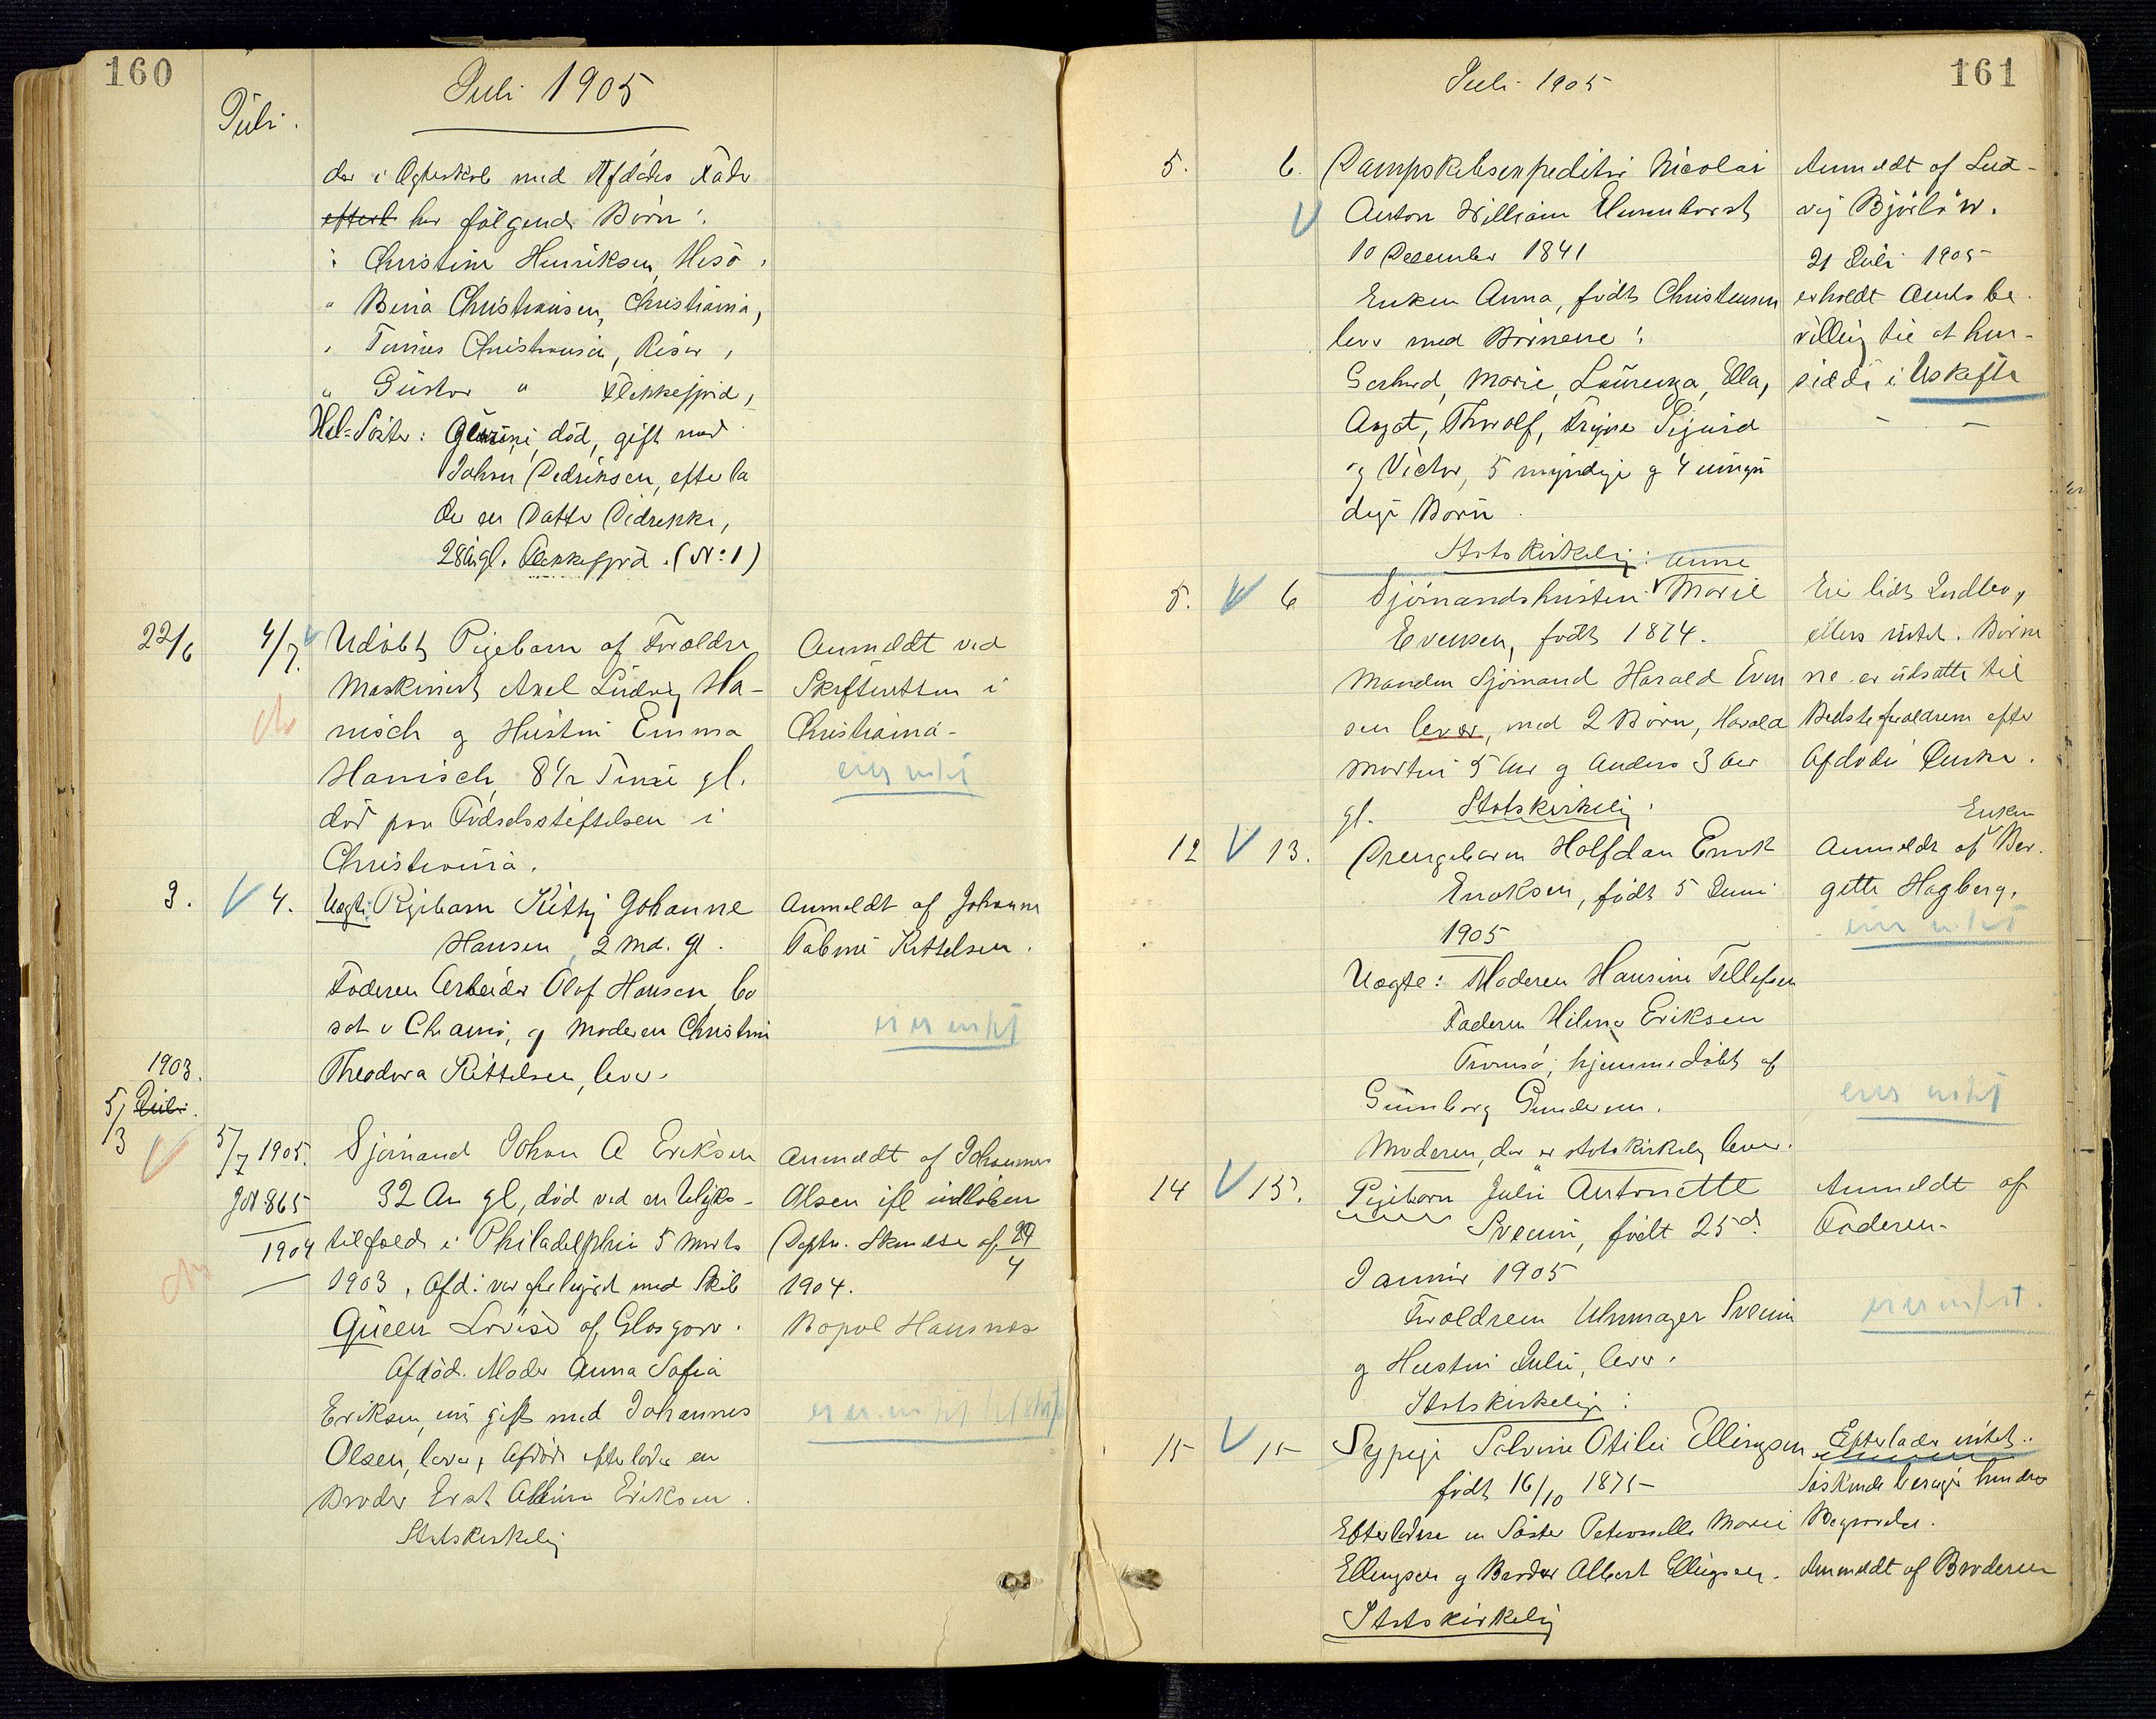 160
Juli 1905
Juli.
der i Ægteskab med Afdødes Fader
efterl har følgende Børn:
Christine Henriksen, Hisø,
" Beria Christiansen, Christiania,
" Tønnes Christiansen, Risør,
" Gustav " Flekkefjord,
Hel-Søster: død, gift med
Johan Pedersen, efterla
der en Datter Didrikke,
28 aar gl. Flekkefjord. (No 1)
22/6 4/7 Udøbt Pigebarn af Forældre
Maskinist Axel Ludvig Ha-
nisch og Hustru Emma
Hanisch, 8 1/2 Time gl.
død paa Fødselsstiftelsen i
Christiania.
Anmeldt ved
Skifteretten i
Christiania-
eies intet
3. 4. Uægte Pigebarn Kitty Johanne
Hansen, 2 Md. gl.
Faderen Arbeider Olaf Hansen, bo
sat i Chania, og Moderen Christine
Theodora Kittelsen, lever.
Anmeldt af Johanne
Tabine Kittelsen.
eies intet
1903.
5/3 Juli.
5/7 1905.
JN 865
1904
Sjømand Johan A Eriksen
32 Aar gl, død ved en Ulykks-
tilfælde i Philadelphia 5 Marts
1903, Afd. var forhyret med Skib
Queen Louise af Glasgow.
Afdød. Moder Anna Sofia
Eriksen, nu gift med Johannes
Olsen, lever, Afdøde efterlader en
Broder Erst Albin Eriksen.
Statskirkelig
Anmeldt af Johannes
Olsen ifl indløben
Deptn. Skrivelse af 29/4
1904.
Bopæl Hausnes
161
Juli 1905
5. 6. Dampskibsexpeditør Nicolai
Anton William
10 December 1841
Enken Anna, født Christensen
lever med Børnene:
Gerhard, Marie, Laurenza, Ella,
Aagot, Thorolf, Trygve Sigurd
og Victor, 5 myndige og 4 umyn
dige Børn.
Statskirkelig:
Anmeldt af Lud-
vig Bjørløw.
21 Juli 1905
erholdt Amtsbe-
villing til at hen-
sidde i Uskifte
5. 6 Sjømandshustru Anne Marie
Evensen, født 1874.
Manden Sjømand Harald Even
sen lever, med 2 Børn, Harald
Martin 5 Aar og Anders 3 Aar
gl. Statskirkelig.
Eier lidt Indbo,
ellers intet. Børne
ne er udsatte til
Bedsteforældrene efter
Afdødes Ønske.
12 13. Drengebarn Halfdan Enok
Enoksen, født 5 Juni
1905
Uægte: Moderen Hansine Tellefsen
Faderen Hilmar Eriksen
Tromsø, hjemmedøbt af
Gunborg Gundersen.
Moderen, der er statskirkelig lever.
Anmeldt af Enken Ber-
gitte Hagberg.
eier intet
eies intet
14 15. Pigebarn Julie Antonette
Svenni, født 25de
Januar 1905
Forældrene Uhrmager Svenni
og Hustru Julie, lever.
Statskirkelige:
Anmeldt af
Faderen-
eies intet.
15 15 Sypige Salvine Otilie Ellingsen
født 16/10 1875
Efterladere en Søster Petronelle Marie
Ellingsen og Broder Albert Ellingsen.
Statskirkelig
Efterlader intet.
Søskende besørger hendes
Begravelse.
Anmeldt af Broderen